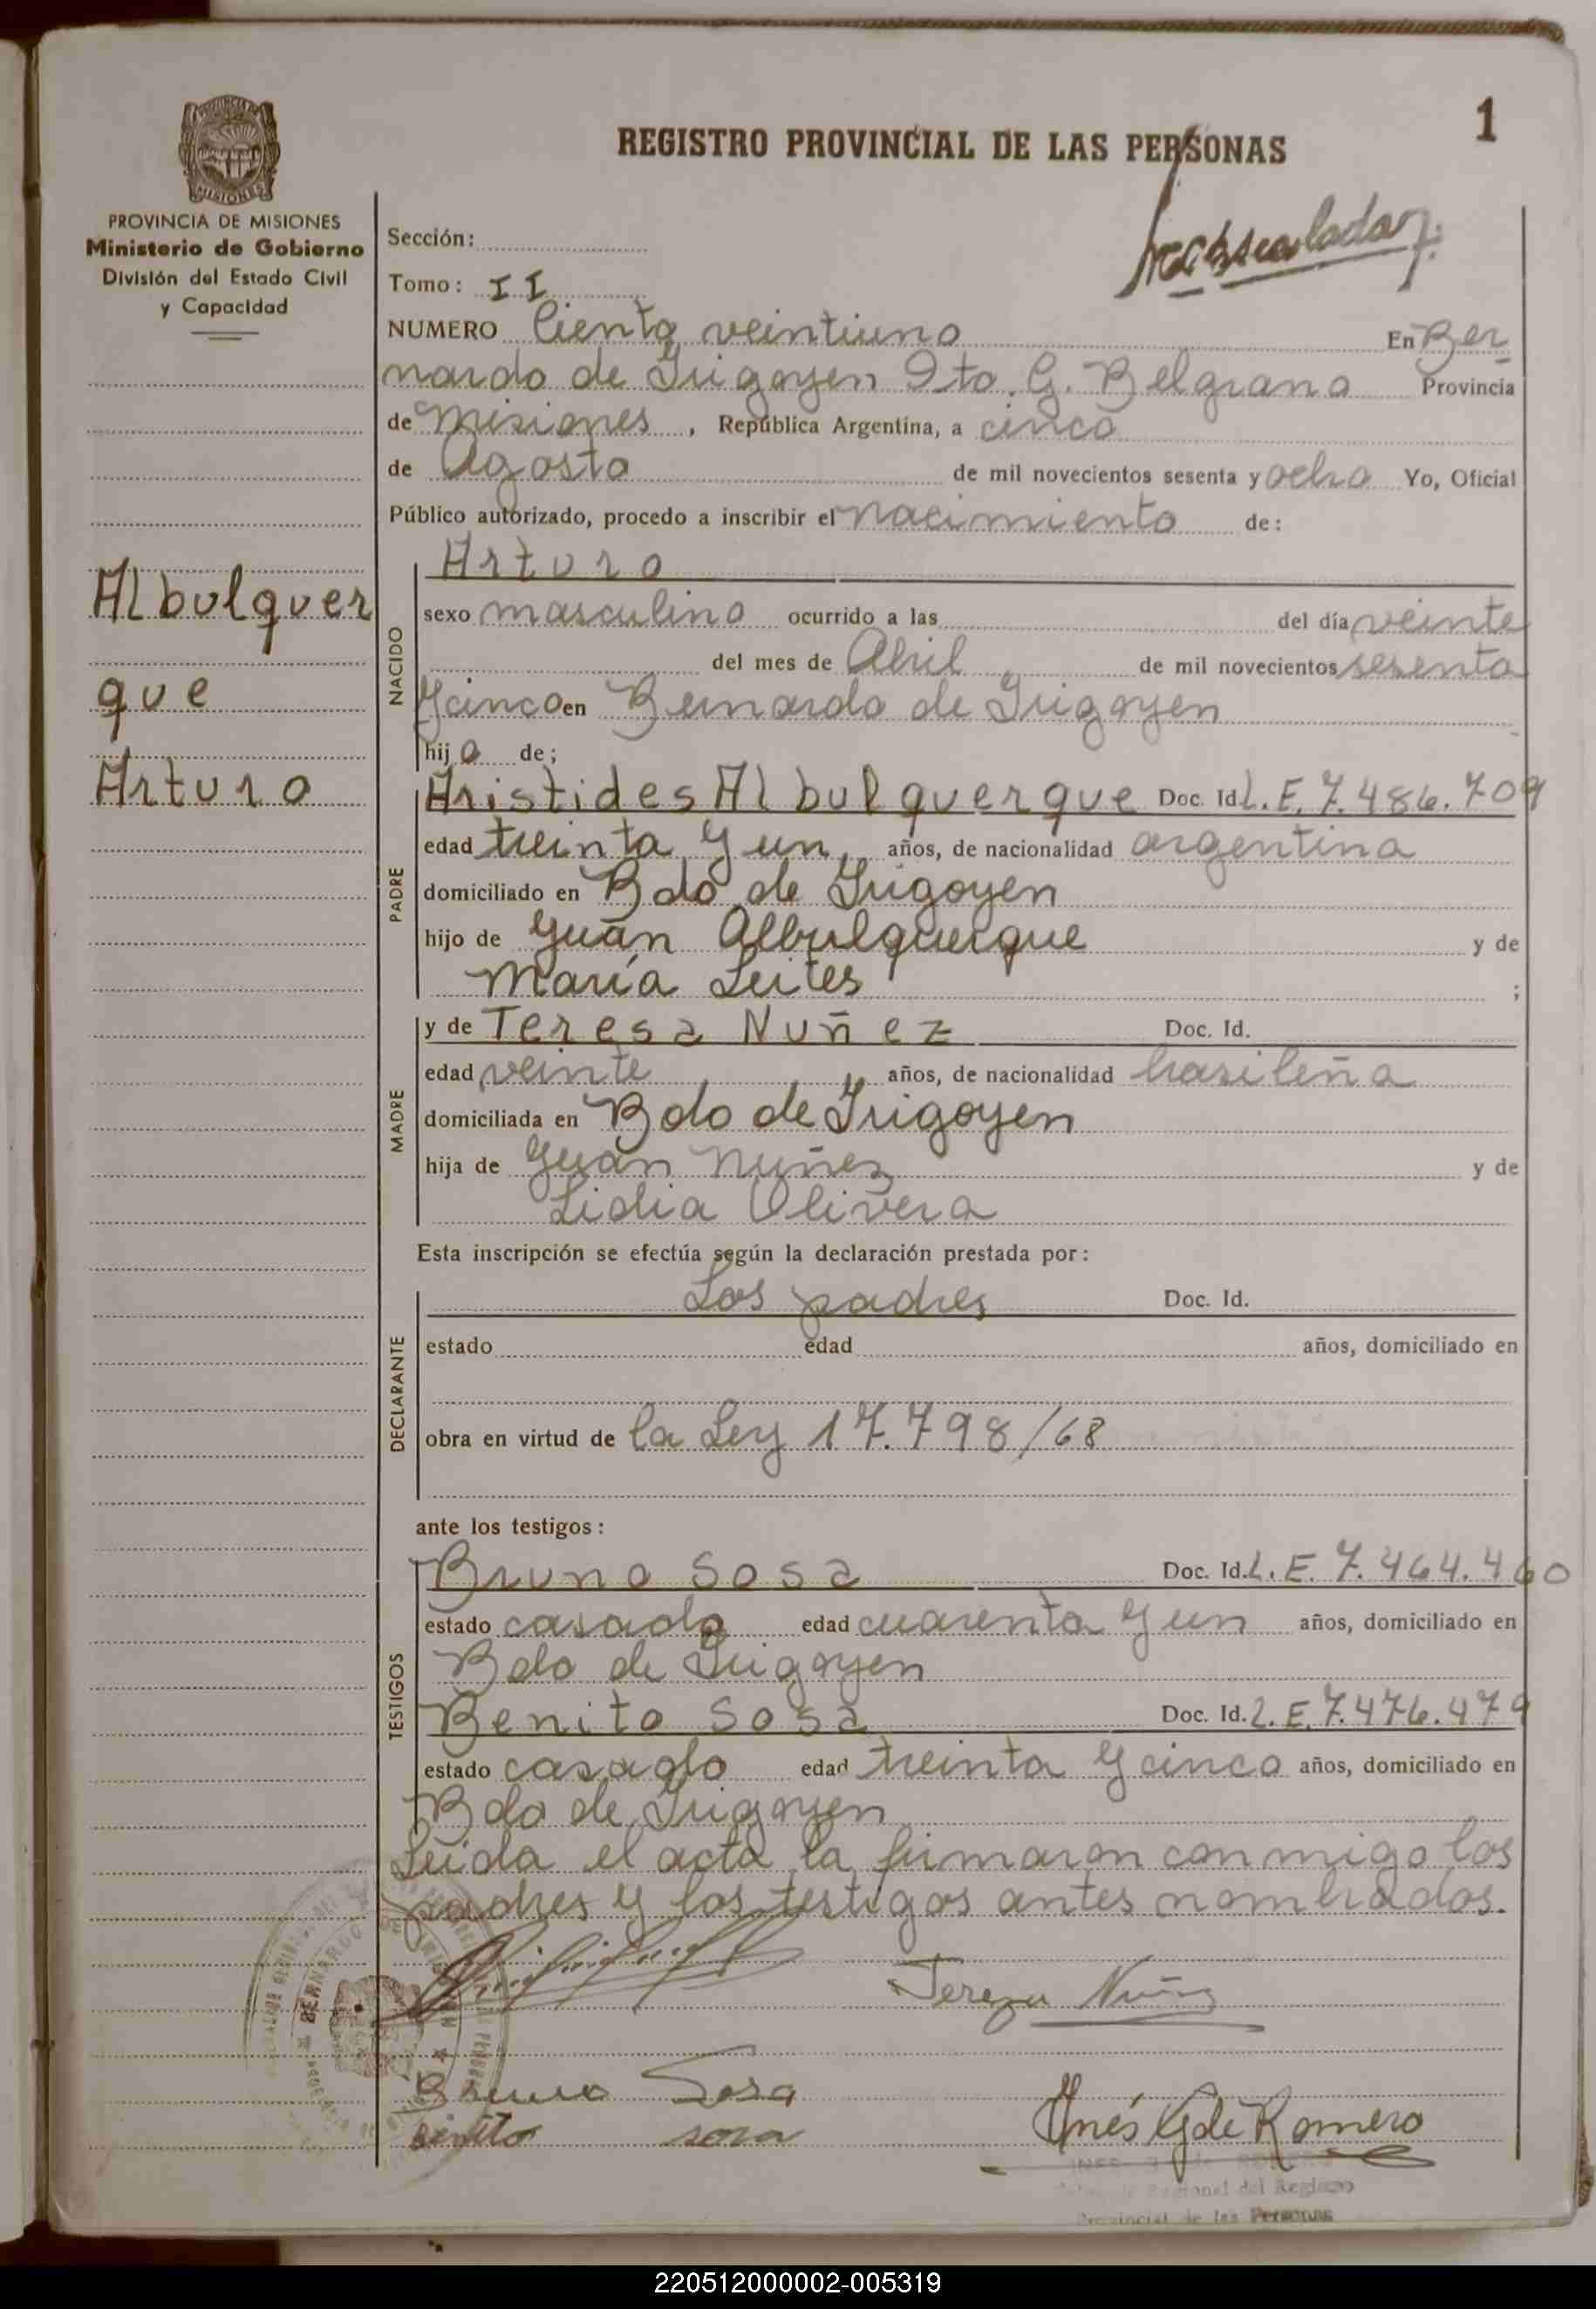 1
REGISTRO PROVINCIAL DE LAS PERSONAS
PROVINCIA DE MISIONES
Ministerio de Gobierno
División del Estado Civil
y Capacidad
Albulquer
que
Arturo
Sección:
Tomo: II
NUMERO Ciento veintiuno En Ber
nardo de Irigoyen Dto. G. Belgrano Provincia
de Misiones, República Argentina, a cinco
de Agosto de mil novecientos sesenta y ocho Yo, Oficial
Público autorizado, procedo a inscribir el nacimiento de:
NACIDO
Arturo
sexo masculino ocurrido a las del día veinte
del mes de Abril de mil novecientos sesenta
y cinco en Bernardo de Irigoyen
hijo de;
PADRE
Aristides Albulquerque Doc. Id. L.E. 7.486.709
edad treinta y un años, de nacionalidad argentina
domiciliado en Bdo de Irigoyen
hijo de Juan Albulquerque y de
María Leites ;
MADRE
y de Teresa Nuñez Doc. Id.
edad veinte años, de nacionalidad brasileña
domiciliada en Bdo de Irigoyen
hija de Juan Nuñez y de
Lidia Olivera
Esta inscripción se efectúa según la declaración prestada por:
DECLARANTE
Los padres Doc. Id.
estado edad años, domiciliado en
obra en virtud de la Ley 17.798/68
ante los testigos:
TESTIGOS
Bruno Sosa Doc. Id. L.E. 7.464.460
estado casado edad cuarenta y un años, domiciliado en
Bdo de Irigoyen
Benito Sosa Doc. Id. L.E. 7.476.479
estado casado edad treinta y cinco años, domiciliado en
Bdo de Irigoyen
Leída el acta la firmaron conmigo los
padres y los testigos antes nombrados.
Tereza Nuñez
Bruno Sosa
Benito sosa
Inés G de Romero
Regional del Registro
Provincial de las Personas
220512000002-005319